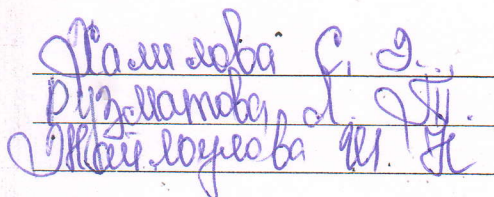 Халилова С. Э.
Рузматова Л. Т.
Жайлоулова Ш. Н